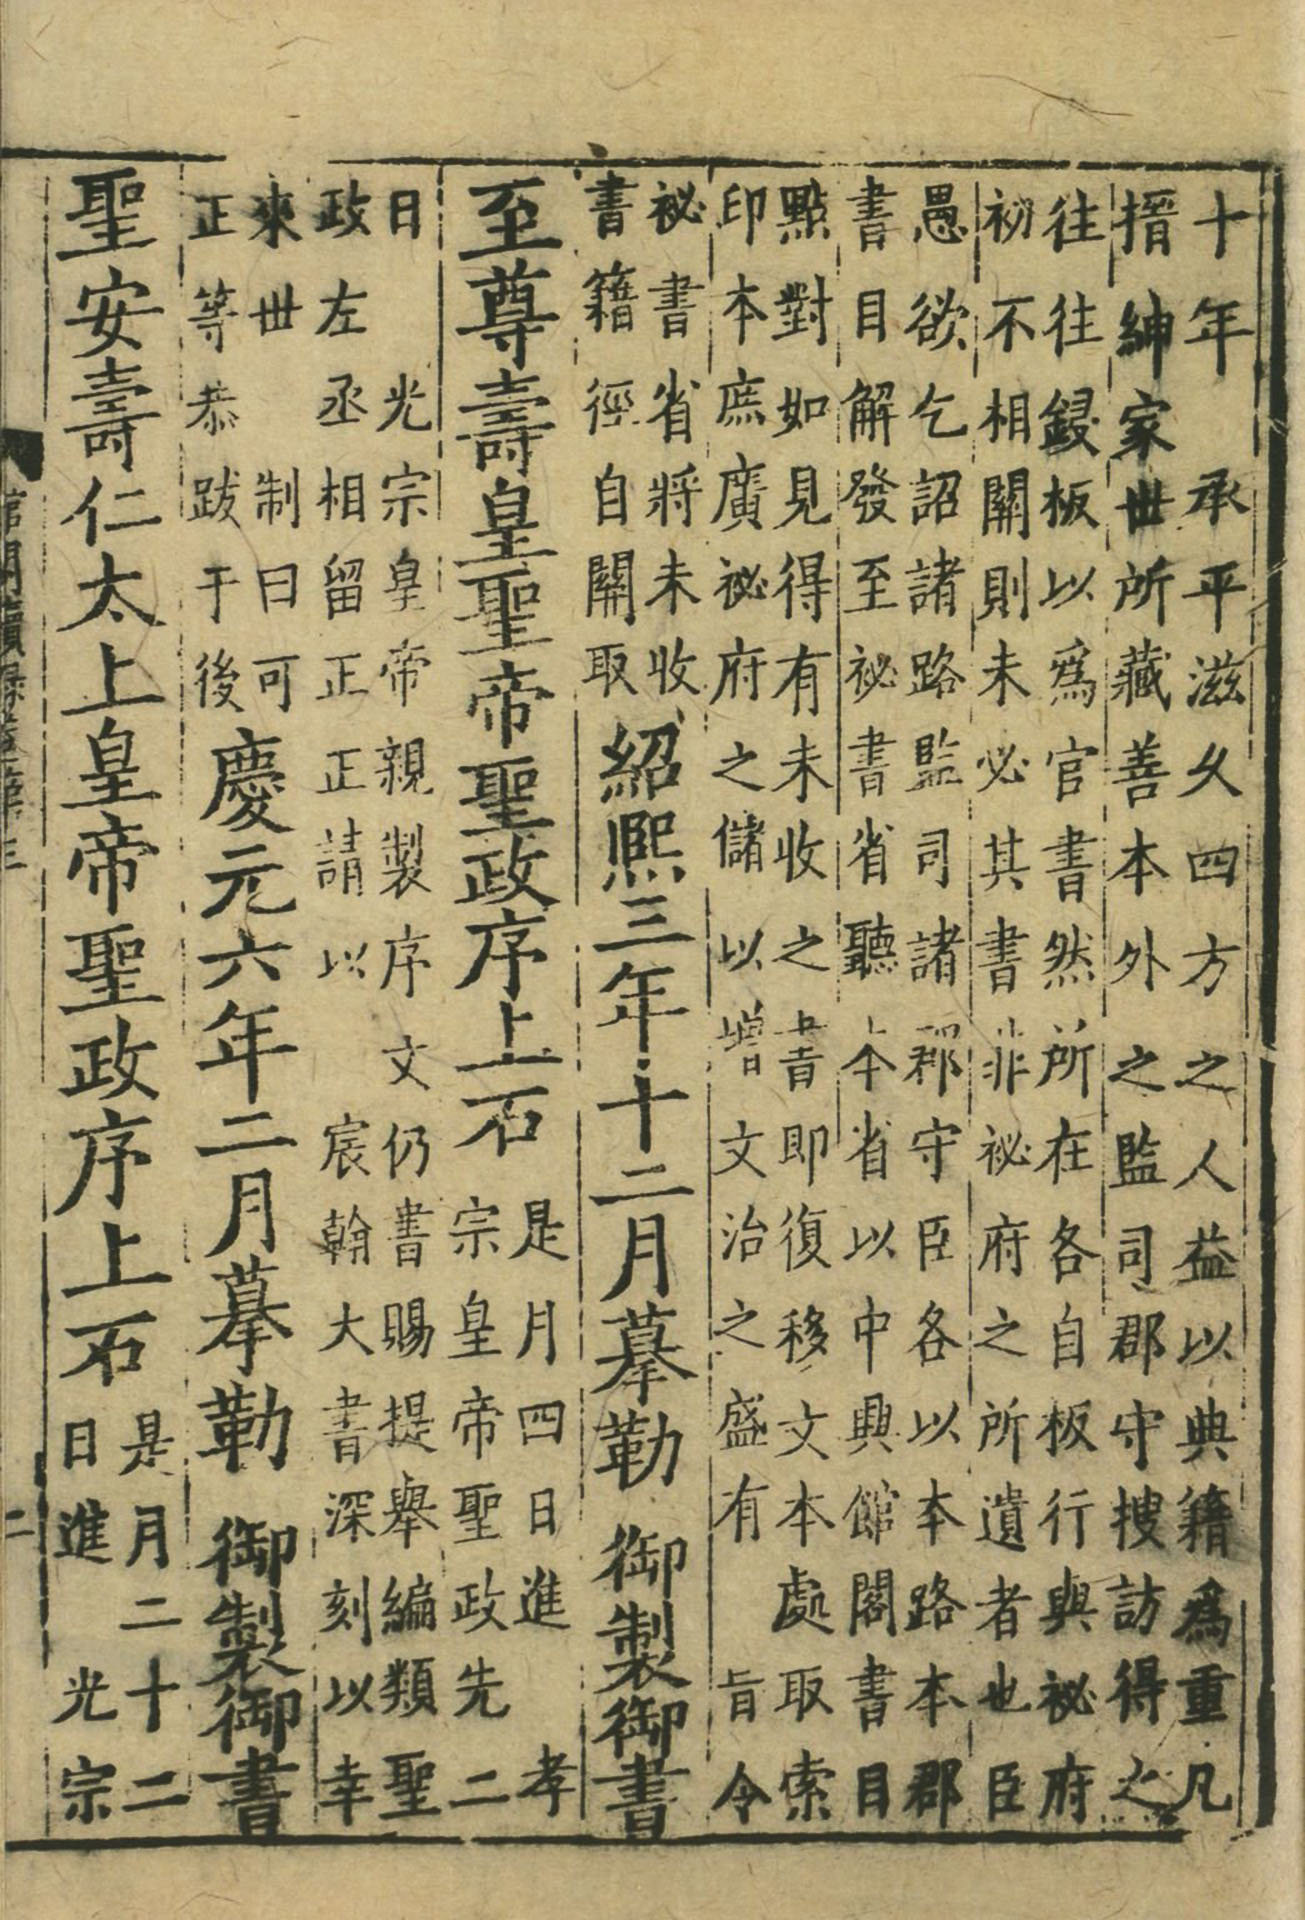 十年　承平滋久四方之人益以典籍爲重凡
搢紳家世所藏善本外之監司郡守搜訪得之
往往鋟板以爲官書然所在各自板行與祕府
初不相關則未必其書非祕府之所遺者也臣
愚欲乞詔諸路監司諸郡守臣各以本路本郡
書目解發至祕書省聽本省以中興館閣書目
點對如見得有未收之書即復移文本處取索
印本庶廣祕府之儲以增文治之盛有　旨令
祕書省將未收
書籍徑自關取
紹熙三年十二月摹勒　御製御書
至尊壽皇聖帝聖政序上石
是月四日進　孝
宗皇帝聖政先二
日　光宗皇帝親製序文仍書賜提舉編類聖
政左丞相留正正請以　宸翰大書深刻以幸
來世　制曰可
正等恭跋于後
慶元六年二月摹勒　御製御書
聖安壽仁太上皇帝聖政序上石
是月二十二
日進　光宗
館閣續録卷第三
二